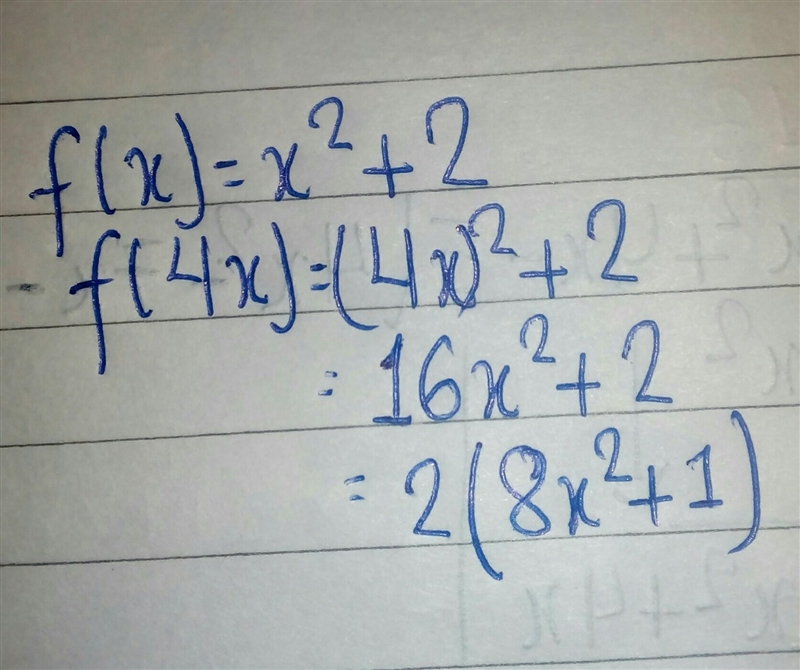 f(x)=x²+2
f(4x)=(4x)²+2
=16x²+2
=2(8x²+1)